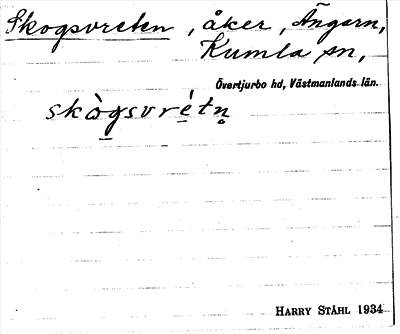 Skogsvreten, åker, Ängarn,
Kumla sn,
Övertjurbo hd, Västmanlands län.
skò̠gsvré̠tn̥
HARRY STÅHL 1934